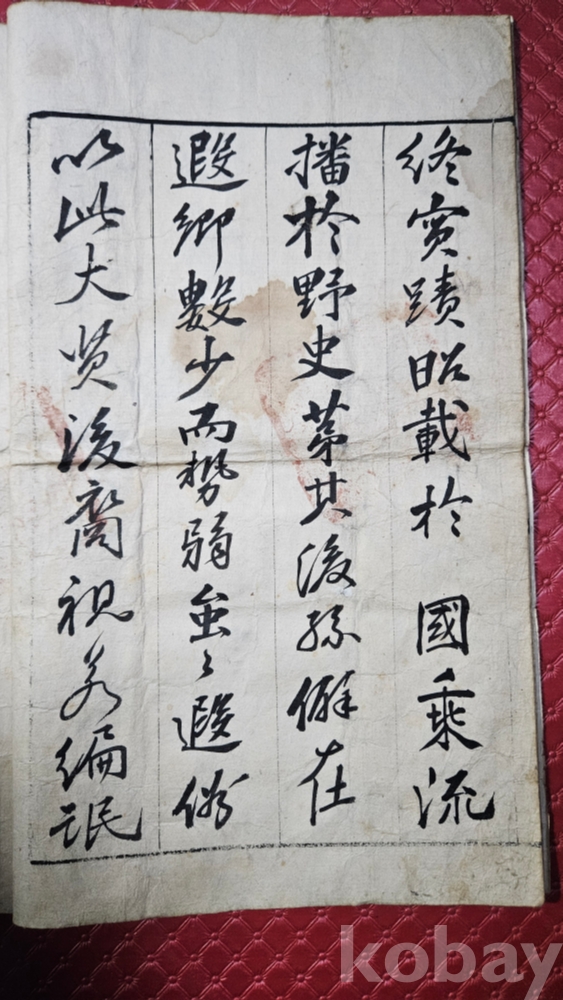 終實蹟昭載於 國乘流
播於野史第其後孫僻在
遐鄉數少而勢弱蚩〻遐俗
以此大賢後裔視若編氓
kobay